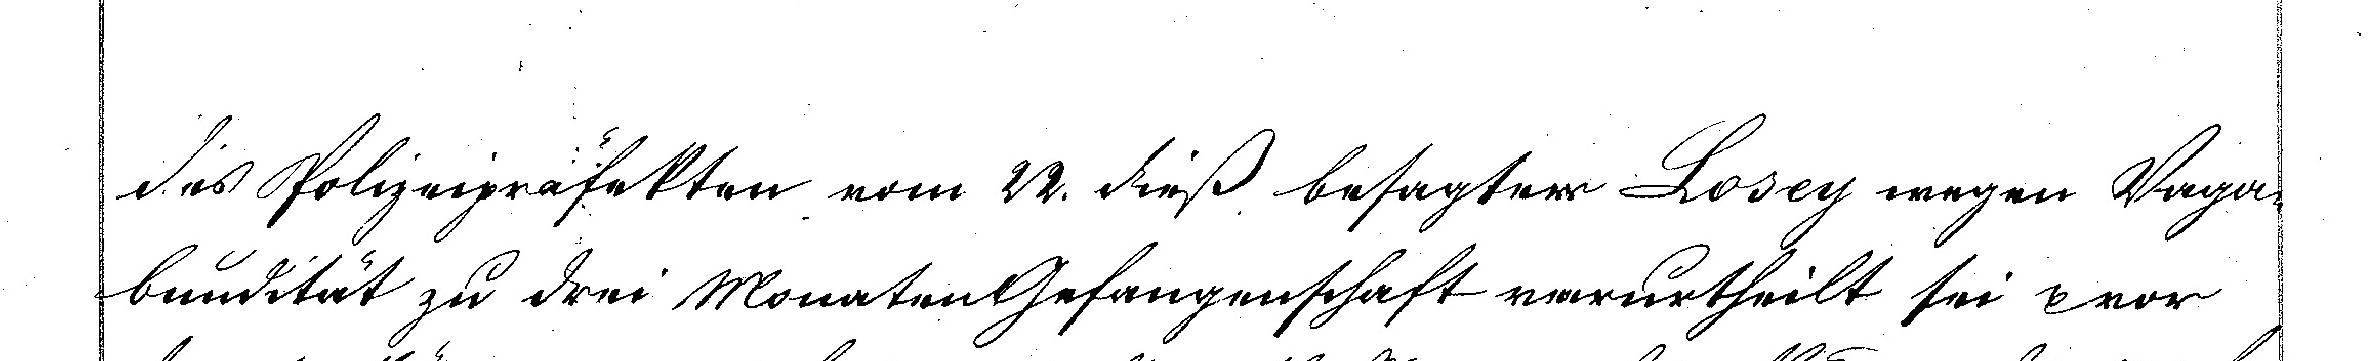 des Polizeipräfekten vom 22. dieß besagter Losey wegen Vaga-
bundität zu drei Monaten Gefangenschaft verurtheilt sei